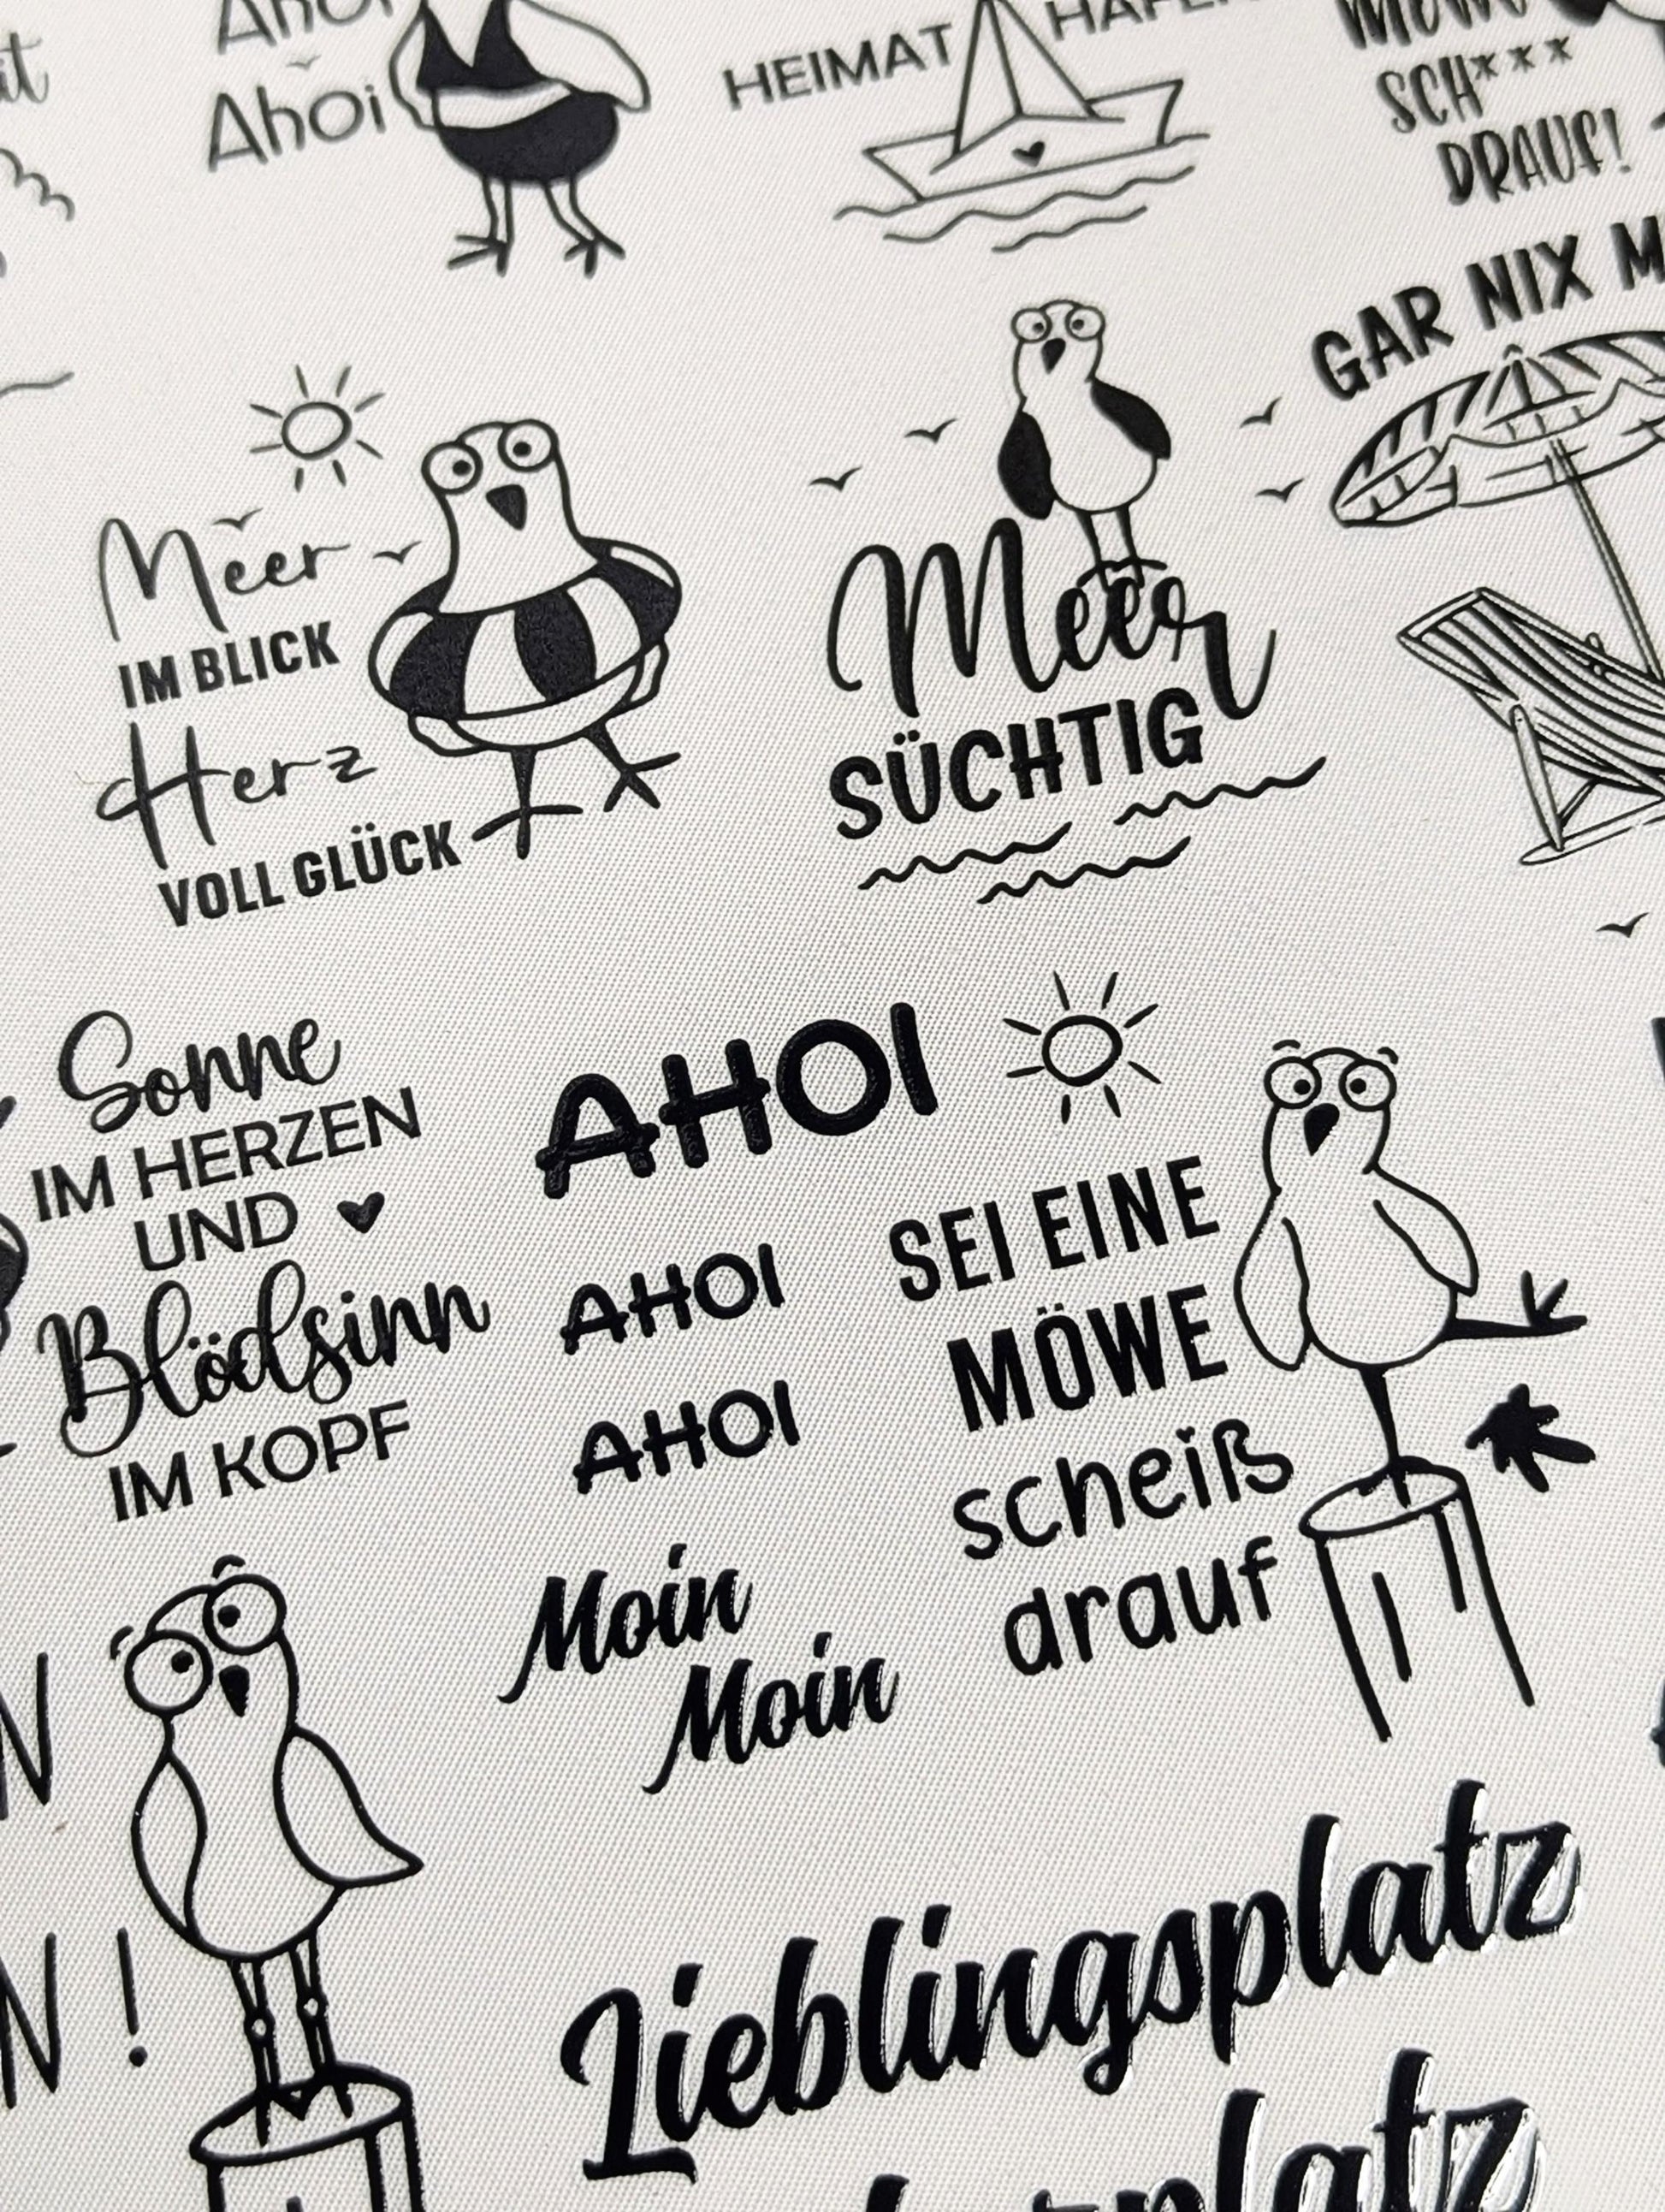 Ahoi
Ahoi
HEIMAT
SCH***
DRAUF!
GAR NIX
Meer
IM BLICK
Herz
VOLL GLÜCK
Meer
SÜCHTIG
Sonne
IM HERZEN
UND
Blödsinn
IM KOPF
AHOI
AHOI
AHOI
SEI EINE
MÖWE
scheiß
drauf
Moin
Moin
Lieblingsplatz